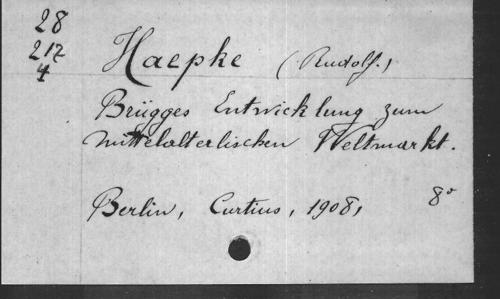 28
217
4
Haepke (Rudolf.)
Brügges Entwicklung zum
mittelalterlischen Weltmarkt.
Berlin, Curtius, 1908, 8°